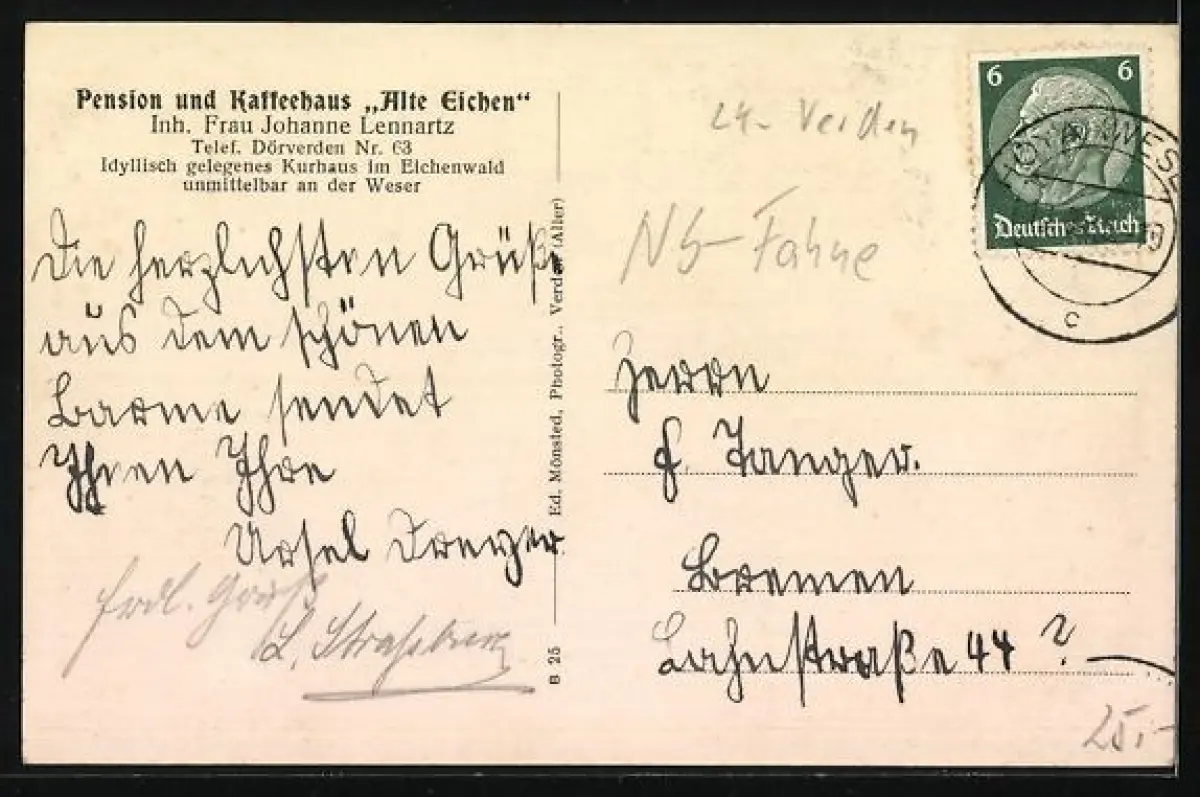 Pension und Kaffeehaus „Alte Eichen“
Inh. Frau Johanne Lennartz
Telef. Dörverden Nr. 63
Idyllisch gelegenes Kurhaus im Eichenwald
unmittelbar an der Weser
Die herzlichsten Grüße
aus dem schönen
Barme sendet
Ihnen Ihre
Ursel Dreyer
frdl. Gruß
L. Strassburg
Ed. Mönsted, Photogr., Verden (Aller)
B 25
24. Verden
NS-Fahne
6 6
Deutsches Reich
c
Herrn
F. Tanger.
Bremen
Lahnstraße 44 ?
25,-